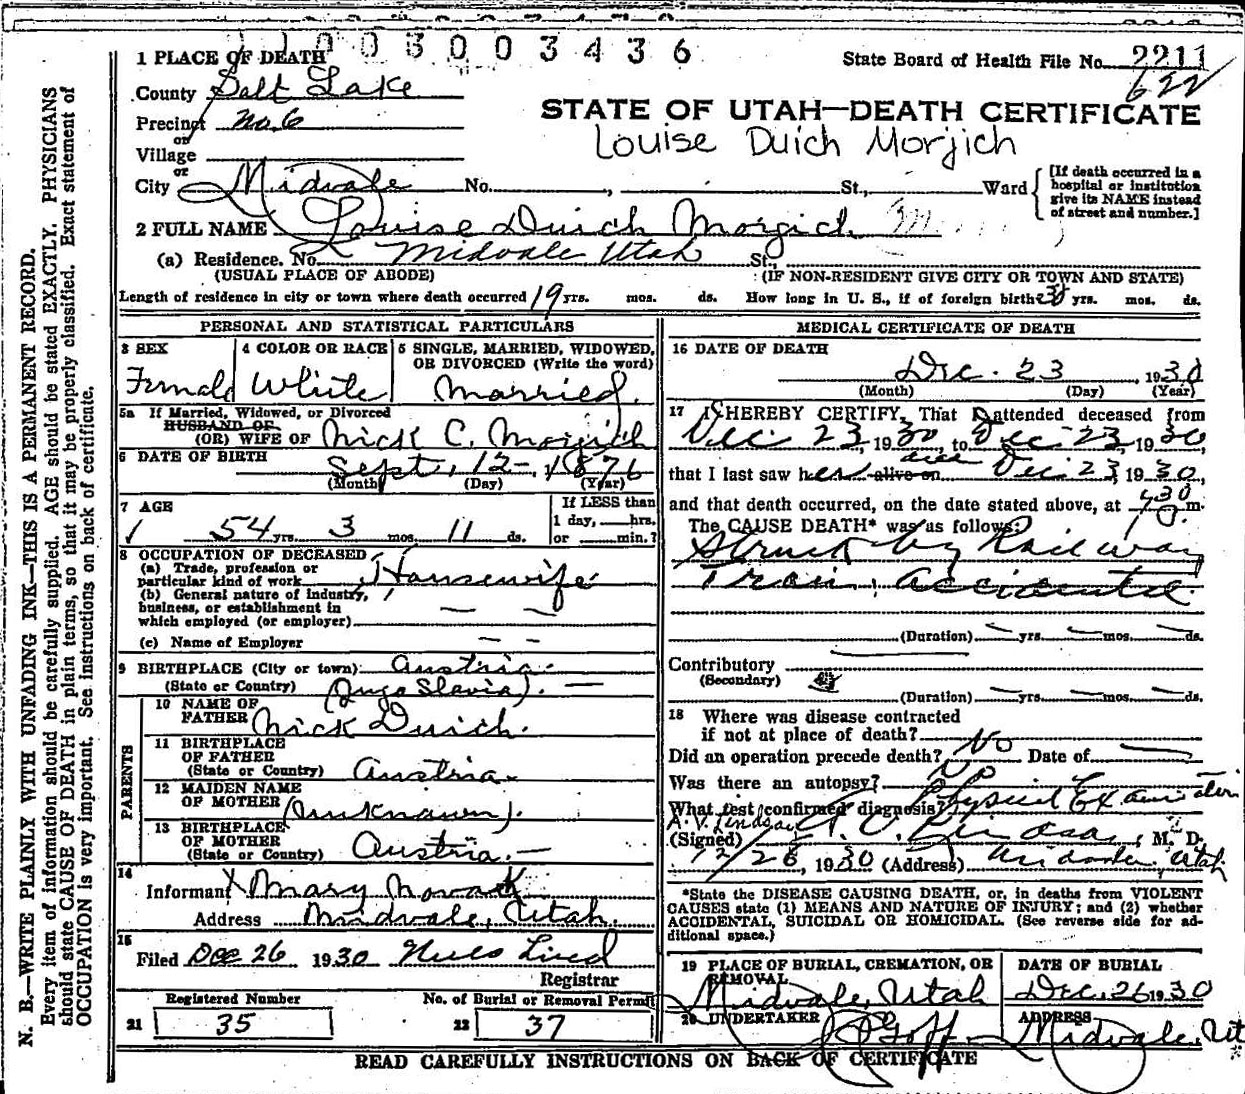 1003003436
1 PLACE OF DEATH
State Board of Health File No. 2211
622
County Salt Lake
STATE OF UTAH—DEATH CERTIFICATE
Precinct No. 6
or
Louise Duich Morjich
Village
or
City Midvale No. , St., Ward
[If death occurred in a hospital or institution give its NAME instead of street and number.]
2 FULL NAME Louise Duich Morgich
(a) Residence. No. Midvale Utah St.,
(USUAL PLACE OF ABODE) (IF NON-RESIDENT GIVE CITY OR TOWN AND STATE)
Length of residence in city or town where death occurred 19 yrs. mos. ds. How long in U. S., if of foreign birth? yrs. mos. ds.
PERSONAL AND STATISTICAL PARTICULARS
3 SEX Female
4 COLOR OR RACE White
5 SINGLE, MARRIED, WIDOWED, OR DIVORCED (Write the word)
Married.
5a If Married, Widowed, or Divorced
HUSBAND OF
(OR) WIFE OF Nick C. Morgich
6 DATE OF BIRTH Sept, 12- 1876
(Month) (Day) (Year)
7 AGE
54 yrs. 3 mos. 11 ds.
If LESS than
1 day, hrs.
or min.?
8 OCCUPATION OF DECEASED
(a) Trade, profession or
particular kind of work Housewife
(b) General nature of industry,
business, or establishment in
which employed (or employer)
(c) Name of Employer
9 BIRTHPLACE (City or town) Austria
(State or Country) (Jugo Slavia).
PARENTS
10 NAME OF
FATHER Nick Duich.
11 BIRTHPLACE
OF FATHER
(State or Country) Austria
12 MAIDEN NAME
OF MOTHER (Unknown).
13 BIRTHPLACE
OF MOTHER
(State or Country) Austria.
14
Informant X Mary Novak
Address Midvale, Utah.
15
Filed Dec 26 1930
Registrar
Registered Number
21 35
No. of Burial or Removal Permit
22 37
MEDICAL CERTIFICATE OF DEATH
16 DATE OF DEATH
Dec. 23, 1930
(Month) (Day) (Year)
17 I HEREBY CERTIFY, That I attended deceased from
Dec 23, 1930, to Dec 23, 1930,
that I last saw her alive on Dec 23, 1930,
and that death occurred, on the date stated above, at m.
The CAUSE DEATH* was as follows:
Struck by Railway
Train, accidental.
(Duration) yrs. mos. ds.
Contributory
(Secondary)
(Duration) yrs. mos. ds.
18 Where was disease contracted
if not at place of death?
Did an operation precede death? No Date of
Was there an autopsy? No
What test confirmed diagnosis? Physical Examination
A. V. Lindsay
(Signed) A. V. Lindsay, M. D.
12/26, 1930 (Address) Midvale, Utah
*State the DISEASE CAUSING DEATH, or, in deaths from VIOLENT
CAUSES state (1) MEANS AND NATURE OF INJURY; and (2) whether
ACCIDENTAL, SUICIDAL OR HOMICIDAL. (See reverse side for ad-
ditional space.)
19 PLACE OF BURIAL, CREMATION, OR
REMOVAL
Midvale, Utah
DATE OF BURIAL
Dec. 26 1930
20 UNDERTAKER Goff
ADDRESS
Midvale, Ut
READ CAREFULLY INSTRUCTIONS ON BACK OF CERTIFICATE
N. B.—WRITE PLAINLY WITH UNFADING INK—THIS IS A PERMANENT RECORD.
Every item of information should be carefully supplied. AGE should be stated EXACTLY. PHYSICIANS
should state CAUSE OF DEATH in plain terms, so that it may be properly classified. Exact statement of
OCCUPATION is very important. See instructions on back of certificate.